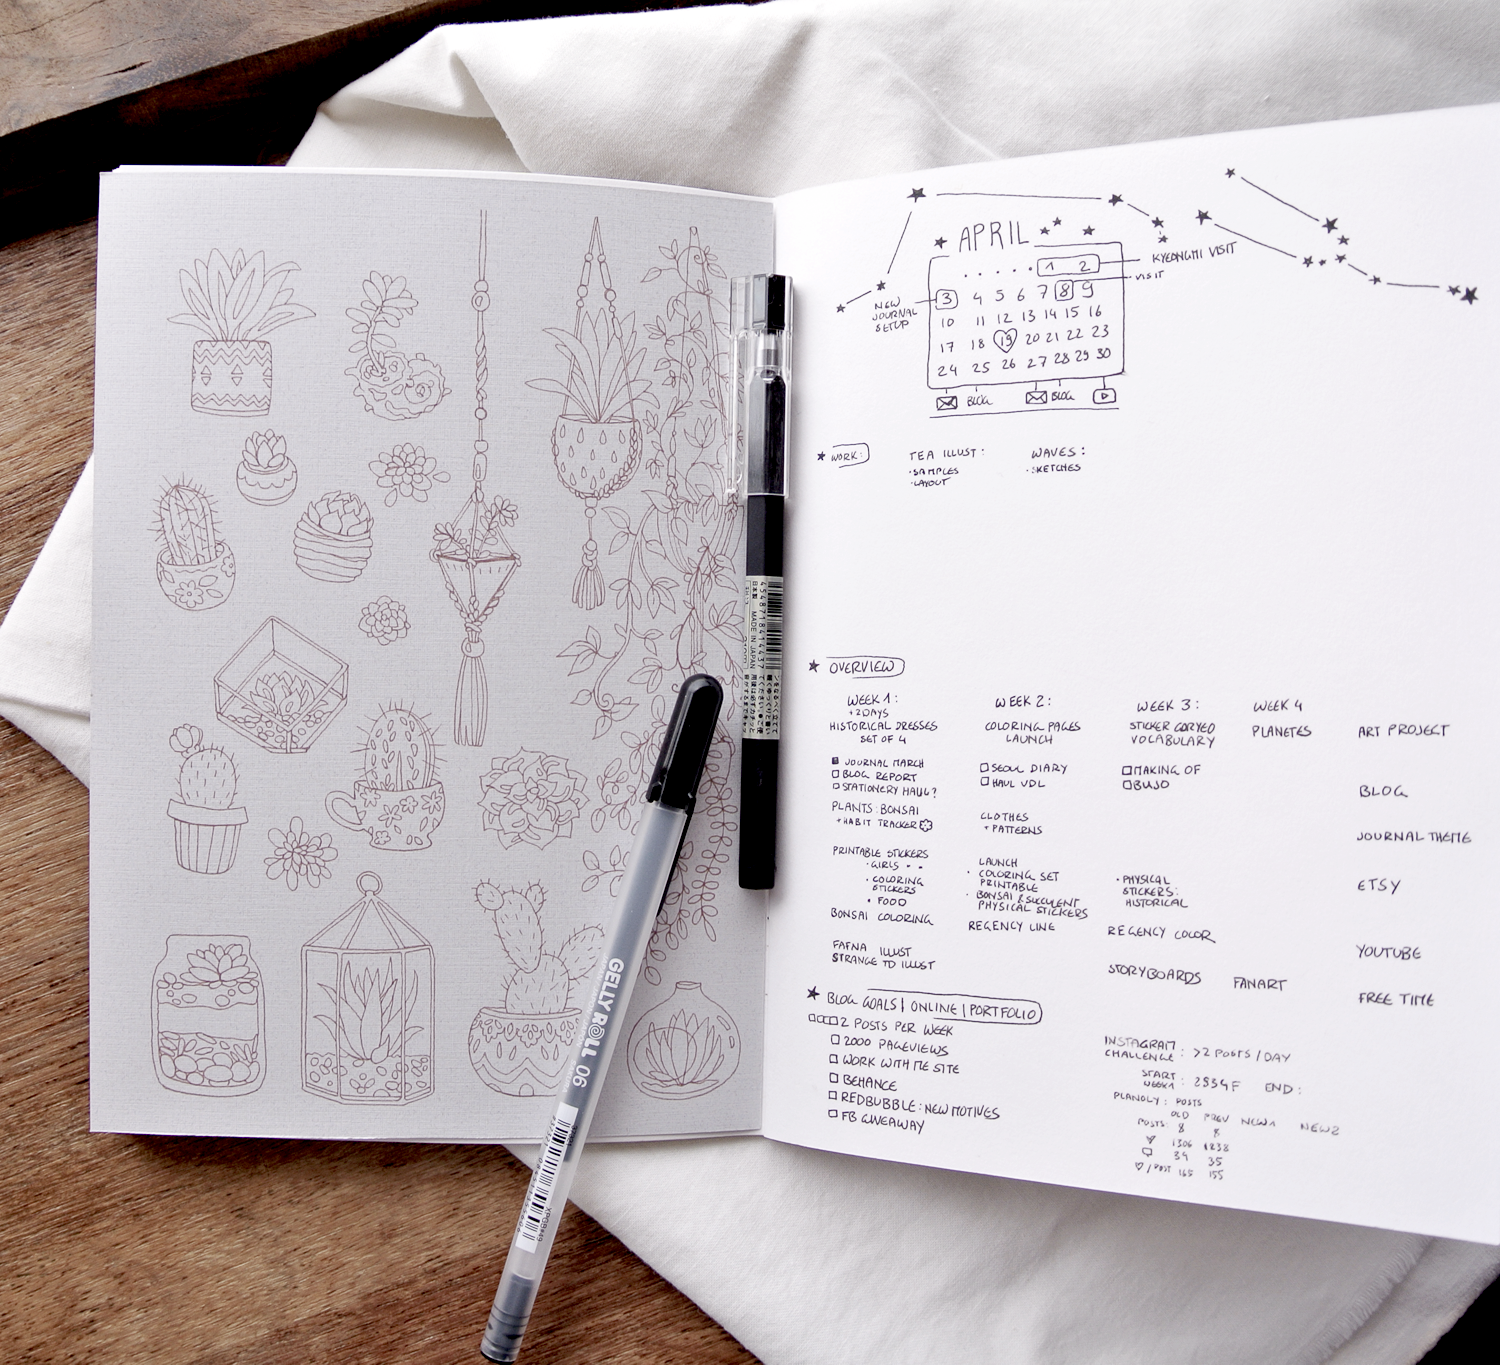 APRIL
1 2
KYEONGMI VISIT
3 4 5 6 7 8 9
VISIT
NEW
JOURNAL
SETUP
10 11 12 13 14 15 16
17 18 19 20 21 22 23
24 25 26 27 28 29 30
BLOG BLOG
WORK:
TEA ILLUST:
·SAMPLES
·LAYOUT
WAVES:
·SKETCHES
OVERVIEW
WEEK 1:
+2DAYS
HISTORICAL DRESSES
SET OF 4
JOURNAL MARCH
BLOG REPORT
STATIONERY HAUL?
PLANTS: BONSAI
+HABIT TRACKER
PRINTABLE STICKERS
·GIRLS
·COLORING
STICKERS
·FOOD
BONSAI COLORING
FAFNA ILLUST
STRANGE TD ILLUST
WEEK 2:
COLORING PAGES
LAUNCH
SEOUL DIARY
HAUL VDL
CLOTHES
+PATTERNS
LAUNCH
· COLORING SET
PRINTABLE
· BONSAI & SUCCULENT
PHYSICAL STICKERS
REGENCY LINE
WEEK 3:
STICKER
VOCABULARY
MAKING OF
BUJO
·PHYSICAL
STICKERS:
HISTORICAL
REGENCY COLOR
STORYBOARDS
WEEK 4
PLANETES
FANART
ART PROJECT
BLOG
JOURNAL THEME
ETSY
YOUTUBE
FREE TIME
BLOG GOALS | ONLINE | PORTFOLIO
2 POSTS PER WEEK
2000 PAGEVIEWS
WORK WITH ME SITE
BEHANCE
REDBUBBLE: NEW MOTIVES
FB GIVEAWAY
INSTAGRAM
CHALLENGE: >2 POSTS / DAY
START
WEEK1 : 2834F END:
PLANOLY: POSTS
OLD PREV NEW1 NEW2
POSTS: 8 8
1306 1238
34 35
/ POST 165 155
4548718414437
日本製 MADE IN JAPAN
GELLY ROLL 06
XPGB#49